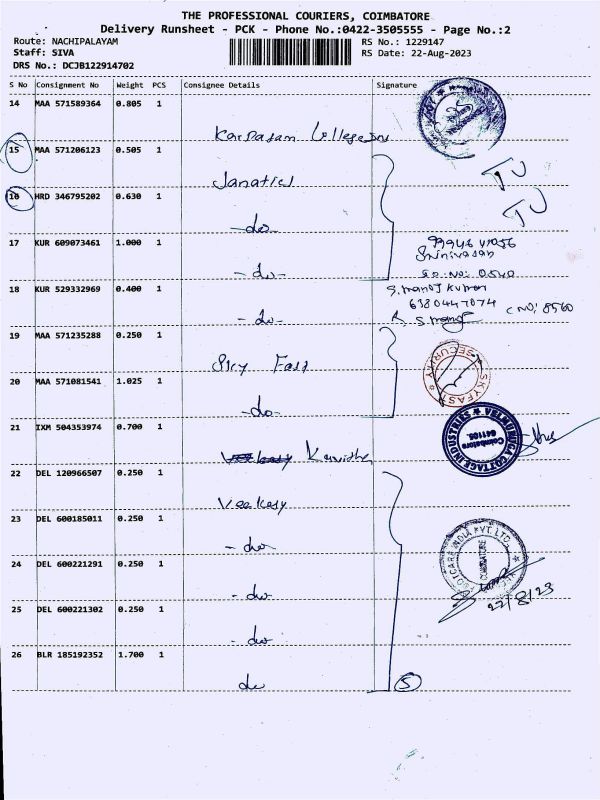 THE PROFESSIONAL COURIERS, COIMBATORE
Delivery Runsheet - PCK - Phone No.:0422-3505555 - Page No.:2
Route: NACHIPALAYAM RS No.: 1229147
Staff: SIVA RS Date: 22-Aug-2023
DRS No.: DCJB122914702
S No Consignment No Weight PCS Consignee Details Signature
14 MAA 571589364 0.805 1
Karpagam College
15 MAA 571206123 0.505 1
Janatics
16 HRD 346795202 0.630 1
-do-
17 KUR 609073461 1.000 1
Srinivasan
-do-
18 KUR 529332969 0.400 1
S.manoj kumar
6380447074 C NO: 8560
-do- S.manoj
19 MAA 571235288 0.250 1
Sky Fast
SECURITY SKYFAST
20 MAA 571081541 1.025 1
-do-
21 IXM 504353974 0.700 1
VELMURUGA COTTAGE INDUSTRIES
Coimbatore
641105.
22 DEL 120966507 0.250 1
Veekesy
23 DEL 600185011 0.250 1
-do-
CARE INDIA PVT. LTD.
COIMBATORE
24 DEL 600221291 0.250 1
-do-
22/8/23
25 DEL 600221302 0.250 1
-do-
26 BLR 185192352 1.700 1
do
5